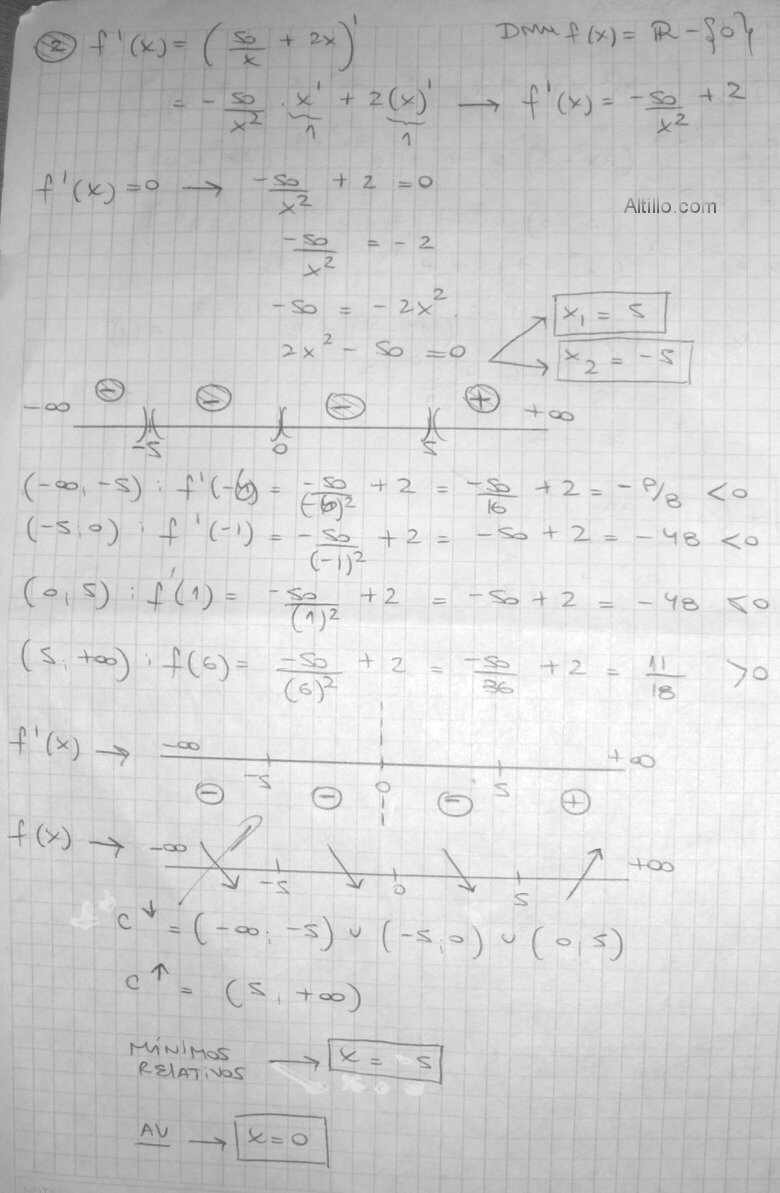 ② f'(x) = (50/x + 2x)' Dom f(x) = ℝ - {0}
= - 50/x² · x' + 2(x)' → f'(x) = -50/x² + 2
1 1
f'(x) = 0 → -50/x² + 2 = 0
Altillo.com
-50/x² = - 2
-50 = - 2x²
x₁ = 5
2x² - 50 = 0
x₂ = -5
⊖ ⊖ ⊖ ⊕
-∞ +∞
-5 0 5
(-∞, -5) : f'(-6) = -50/(-6)² + 2 = -50/16 + 2 = - 9/8 < 0
(-5, 0) : f'(-1) = -50/(-1)² + 2 = -50 + 2 = - 48 < 0
(0, 5) : f'(1) = -50/(1)² + 2 = -50 + 2 = - 48 < 0
(5, +∞) : f(6) = -50/(6)² + 2 = -50/36 + 2 = 11/18 > 0
f'(x) → -∞ +∞
-5 0 5
⊖ ⊖ ⊖ ⊕
f(x) → -∞ +∞
-5 0 5
C↓ = (-∞, -5) ∪ (-5, 0) ∪ (0, 5)
C↑ = (5, +∞)
MÍNIMOS
RELATIVOS → x = 5
AV → x = 0